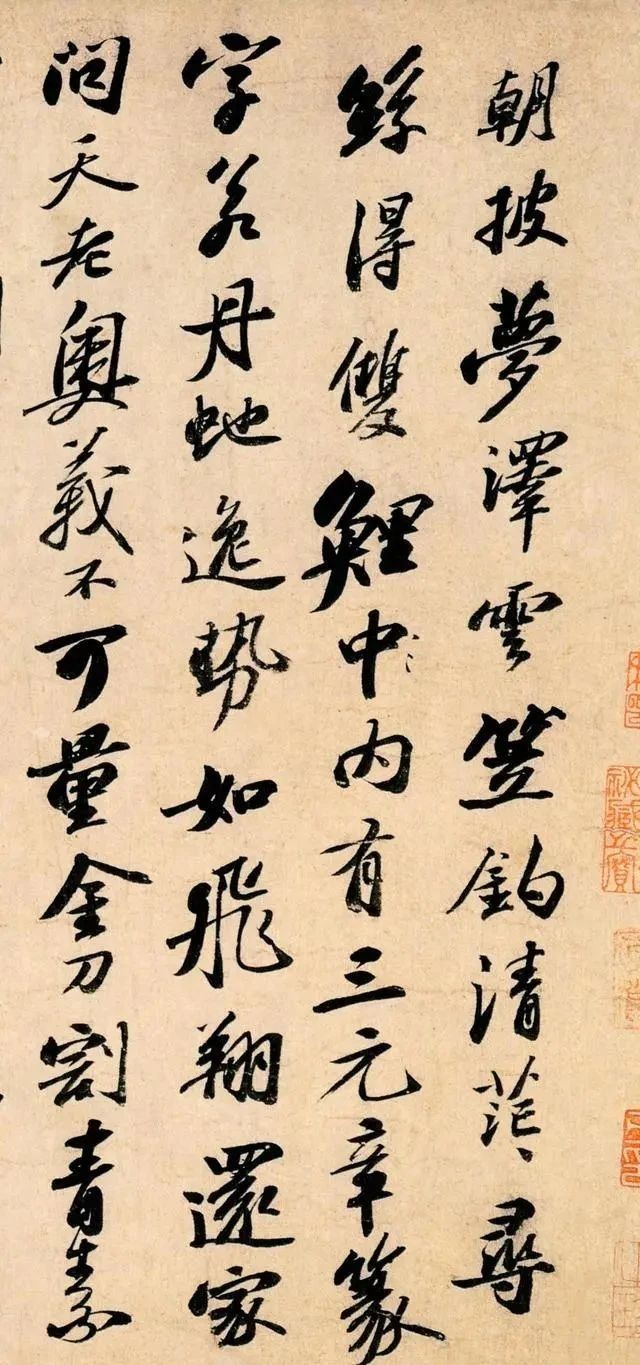 朝披夢澤雲笠釣清茫〻尋
絲得雙鯉中内有三元章篆
字若丹虵逸勢如飛翔還家
問天老奧義不可量金刀割青素